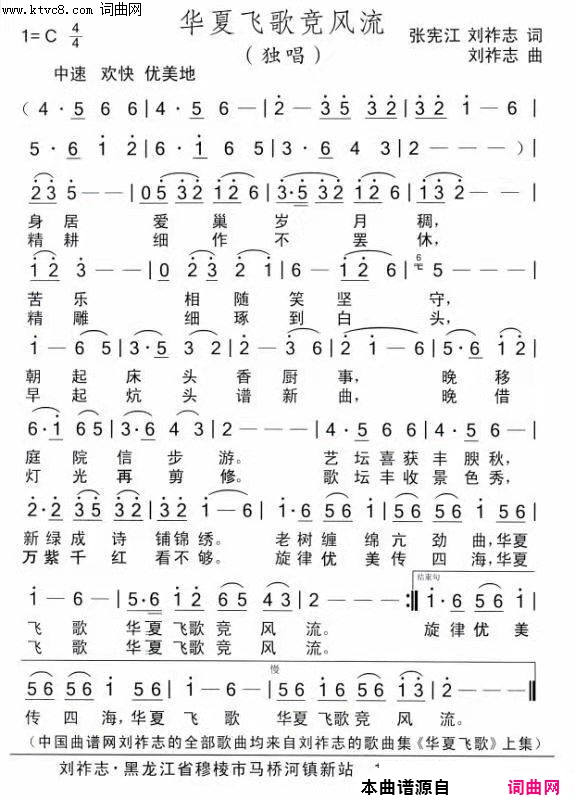 www.ktvc8.com 词曲网
华夏飞歌竞风流
1=C 4/4
(独唱)
张宪江 刘祚志 词
刘祚志 曲
中速 欢快 优美地
(4·5 6 6 | 4·5 6 6 | 2 — 3 5 3 2 | 3 — — — |
5·6 1 2 | 6·1 6 5 | 3·6 4 3 | 2 — — —) |
2 3 5 — — | 0 5 3 2 1 2 6 | 3·5 3 2 1 2 6 | 1 3 2 — — |
身居 爱巢岁月稠,
精耕 细作不罢休,
1 2 3 — — | 0 2 2 3 2 1 | 6 — 1 2 6 | 6 5 — — — |
苦乐 相随笑坚守,
精雕 细琢到白头,
1 — 6 5 | 3·5 3 2 | 2 — 3 5 3 6 | 2 1 — 6 | 5·6 1 2 |
朝起床头香厨事,晚移
早起炕头谱新曲,晚借
6·1 6 5 | 3·6 4 3 | 2 — — — | 4·5 6 6 | 4·5 6 6 |
庭院信步游。 艺坛喜获丰腴秋,
灯光再剪修。 歌坛丰收景色秀,
2·2 3 5 | 3 2 3 2 1 — 6 | 1·6 5 6 1 | 5 6 5 6 5 6 |
新绿成诗铺锦绣。 老树缠绵亢劲曲,华夏
万紫千红看不够。 旋律优美传四海,华夏
1 — 6 — | 5·6 1 2 6 5 4 3 | 2 — — — :‖ 结束句 1·6 5 6 1 |
飞歌 华夏飞歌竞风流。 旋律优美
飞歌 华夏飞歌竞风流。
慢
5 6 5 6 5 6 | 1 — 6 — | 5 6 1 5 6 5 6 1 3 | 2 — — — ‖
传四海,华夏 飞歌 华夏飞歌竞风流。
(中国曲谱网刘祚志的全部歌曲均来自刘祚志的歌曲集《华夏飞歌》上集)
刘祚志·黑龙江省穆棱市马桥河镇新站
本曲谱源自 词曲网